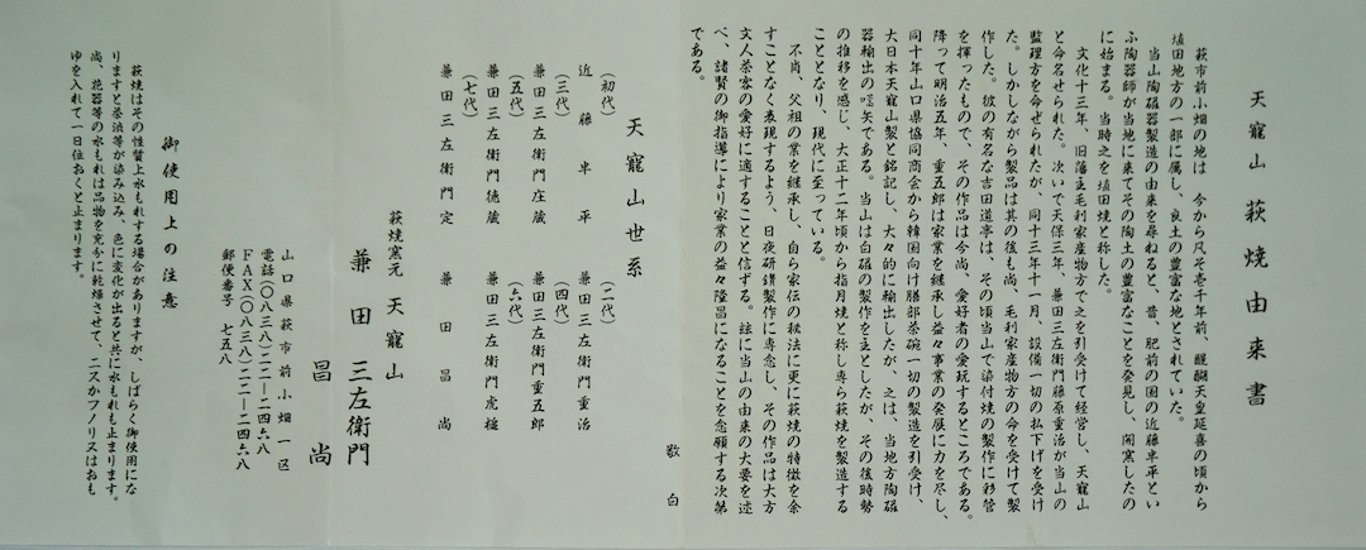 天寵山萩焼由来書
萩市前小畑の地は　今から凡そ壱千年前、醍醐天皇延喜の頃から
埴田地方の一部に属し、良土の豊富な地とされていた。
当山陶磁器製造の由来を尋ねると、昔、肥前の国の近藤卓平とい
ふ陶器師が当地に来てその陶土の豊富なことを発見し、開窯したの
に始まる。当時之を埴田焼と称した。
文化十三年、旧藩主毛利家産物方で之を引受けて経営し、天寵山
と命名せられた。次いで天保三年、兼田三左衛門藤原重治が当山の
監理方を命ぜられたが、同十三年十一月、設備一切の払下げを受け
た。しかしながら製品は其の後も尚、毛利家産物方の命を受けて製
作した。彼の有名な吉田道亭は、その頃当山で染付焼の製作に彩管
を揮ったもので、その作品は今尚、愛好者の愛玩するところである。
降って明治五年、重五郎は家業を継承し益々事業の発展に力を尽し、
同十年山口県協同商会から韓国向け膳部茶碗一切の製造を引受け、
大日本天寵山製と銘記し、大々的に輸出したが、之は、当地方陶磁
器輸出の嚆矢である。当山は白磁の製作を主としたが、その後時勢
の推移を感じ、大正十二年頃から指月焼と称し専ら萩焼を製造する
こととなり、現代に至っている。
不肖、父祖の業を継承し、自ら家伝の秘法に更に萩焼の特徴を余
すことなく表現するよう、日夜研鑚製作に専念し、その作品は大方
文人茶客の愛好に適することと信ずる。茲に当山の由来の大要を述
べ、諸賢の御指導により家業の益々隆昌になることを念願する次第
である。
敬白
天寵山世系
（初代）
近藤卓平
（二代）
兼田三左衛門重治
（三代）
兼田三左衛門庄蔵
（四代）
兼田三左衛門重五郎
（五代）
兼田三左衛門徳蔵
（六代）
兼田三左衛門虎槌
（七代）
兼田三左衛門定
兼田昌尚
萩焼窯元　天寵山
兼田三左衛門
昌尚
山口県萩市前小畑一区
電話（〇八三八）二二―二四六八
ＦＡＸ（〇八三八）二二―二四六八
郵便番号　七五八
御使用上の注意
萩焼はその性質上水もれする場合がありますが、しばらく御使用にな
りますと茶渋等が染み込み、色に変化が出ると共に水もれも止まります。
尚、花器等の水もれは品物を充分に乾燥させて、ニスかフノリ又はおも
ゆを入れて一日位おくと止まります。